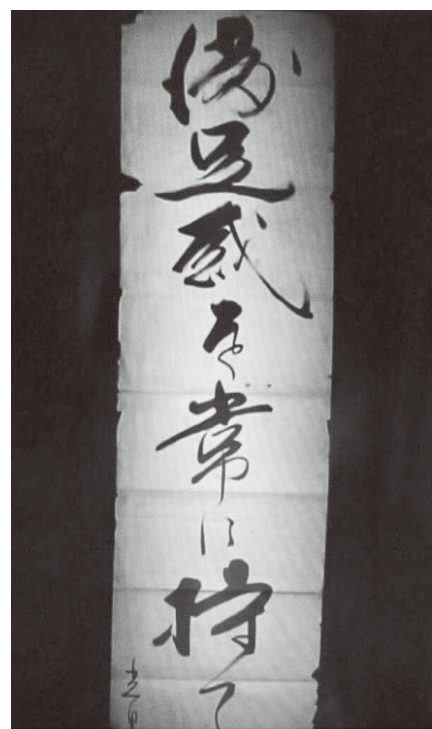 満足感を常に持て